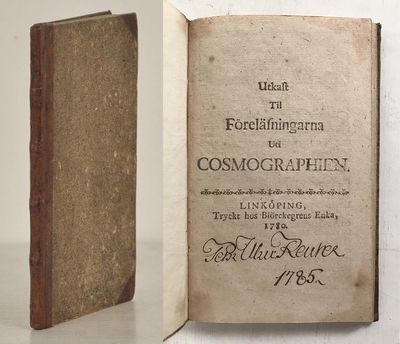 Utkaſt
Til
Föreläſningarna
Uti
COSMOGRAPHIEN.
LINKÖPING,
Tryckt hos Biörckegrens Enka,
1780.
Reuter
1785.